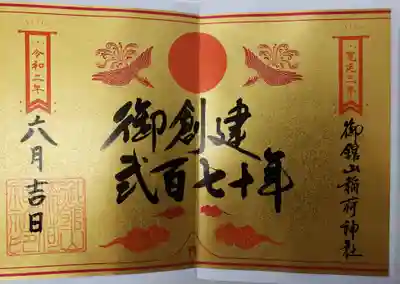 寛延三年
御館山稲荷神社
御創建
弐百七十年
令和二年
六月吉日